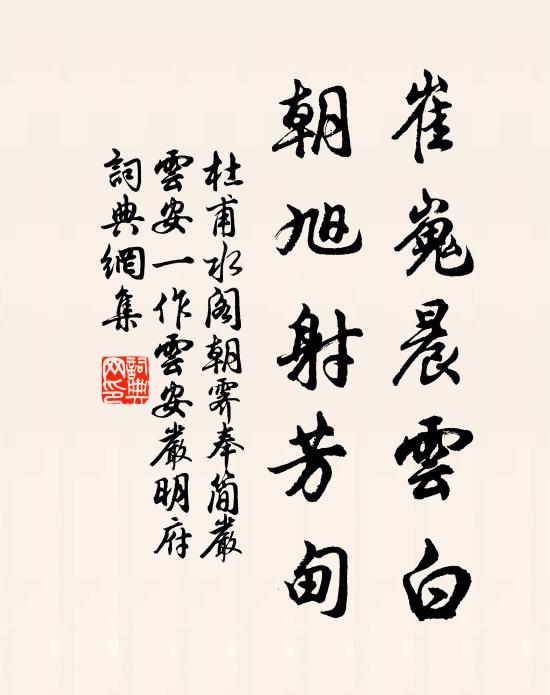 崔嵬晨雲白
朝旭射芳甸
杜甫水閣朝霽奉簡嚴
雲安一作雲安嚴明府
詞典網集
詞典网印